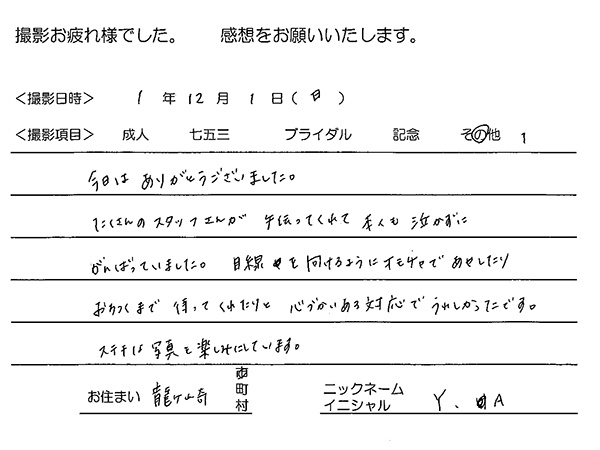 撮影お疲れ様でした。 感想をお願いいたします。
<撮影日時> 1 年 12 月 1 日 (日)
<撮影項目> 成人 七五三 ブライダル 記念 その他 1
今日は ありがとうございました。
たくさんの スタッフさんが 手伝ってくれて 本人も 泣かずに
がんばっていました。 目線 を 向けるように オモチャで あやしたり
おちつくまで 待って くれたりと 心づかいある 対応で うれしかったです。
ステキな 写真を 楽しみにしています。
お住まい 龍ヶ崎 市町村 ニックネーム イニシャル Y. A